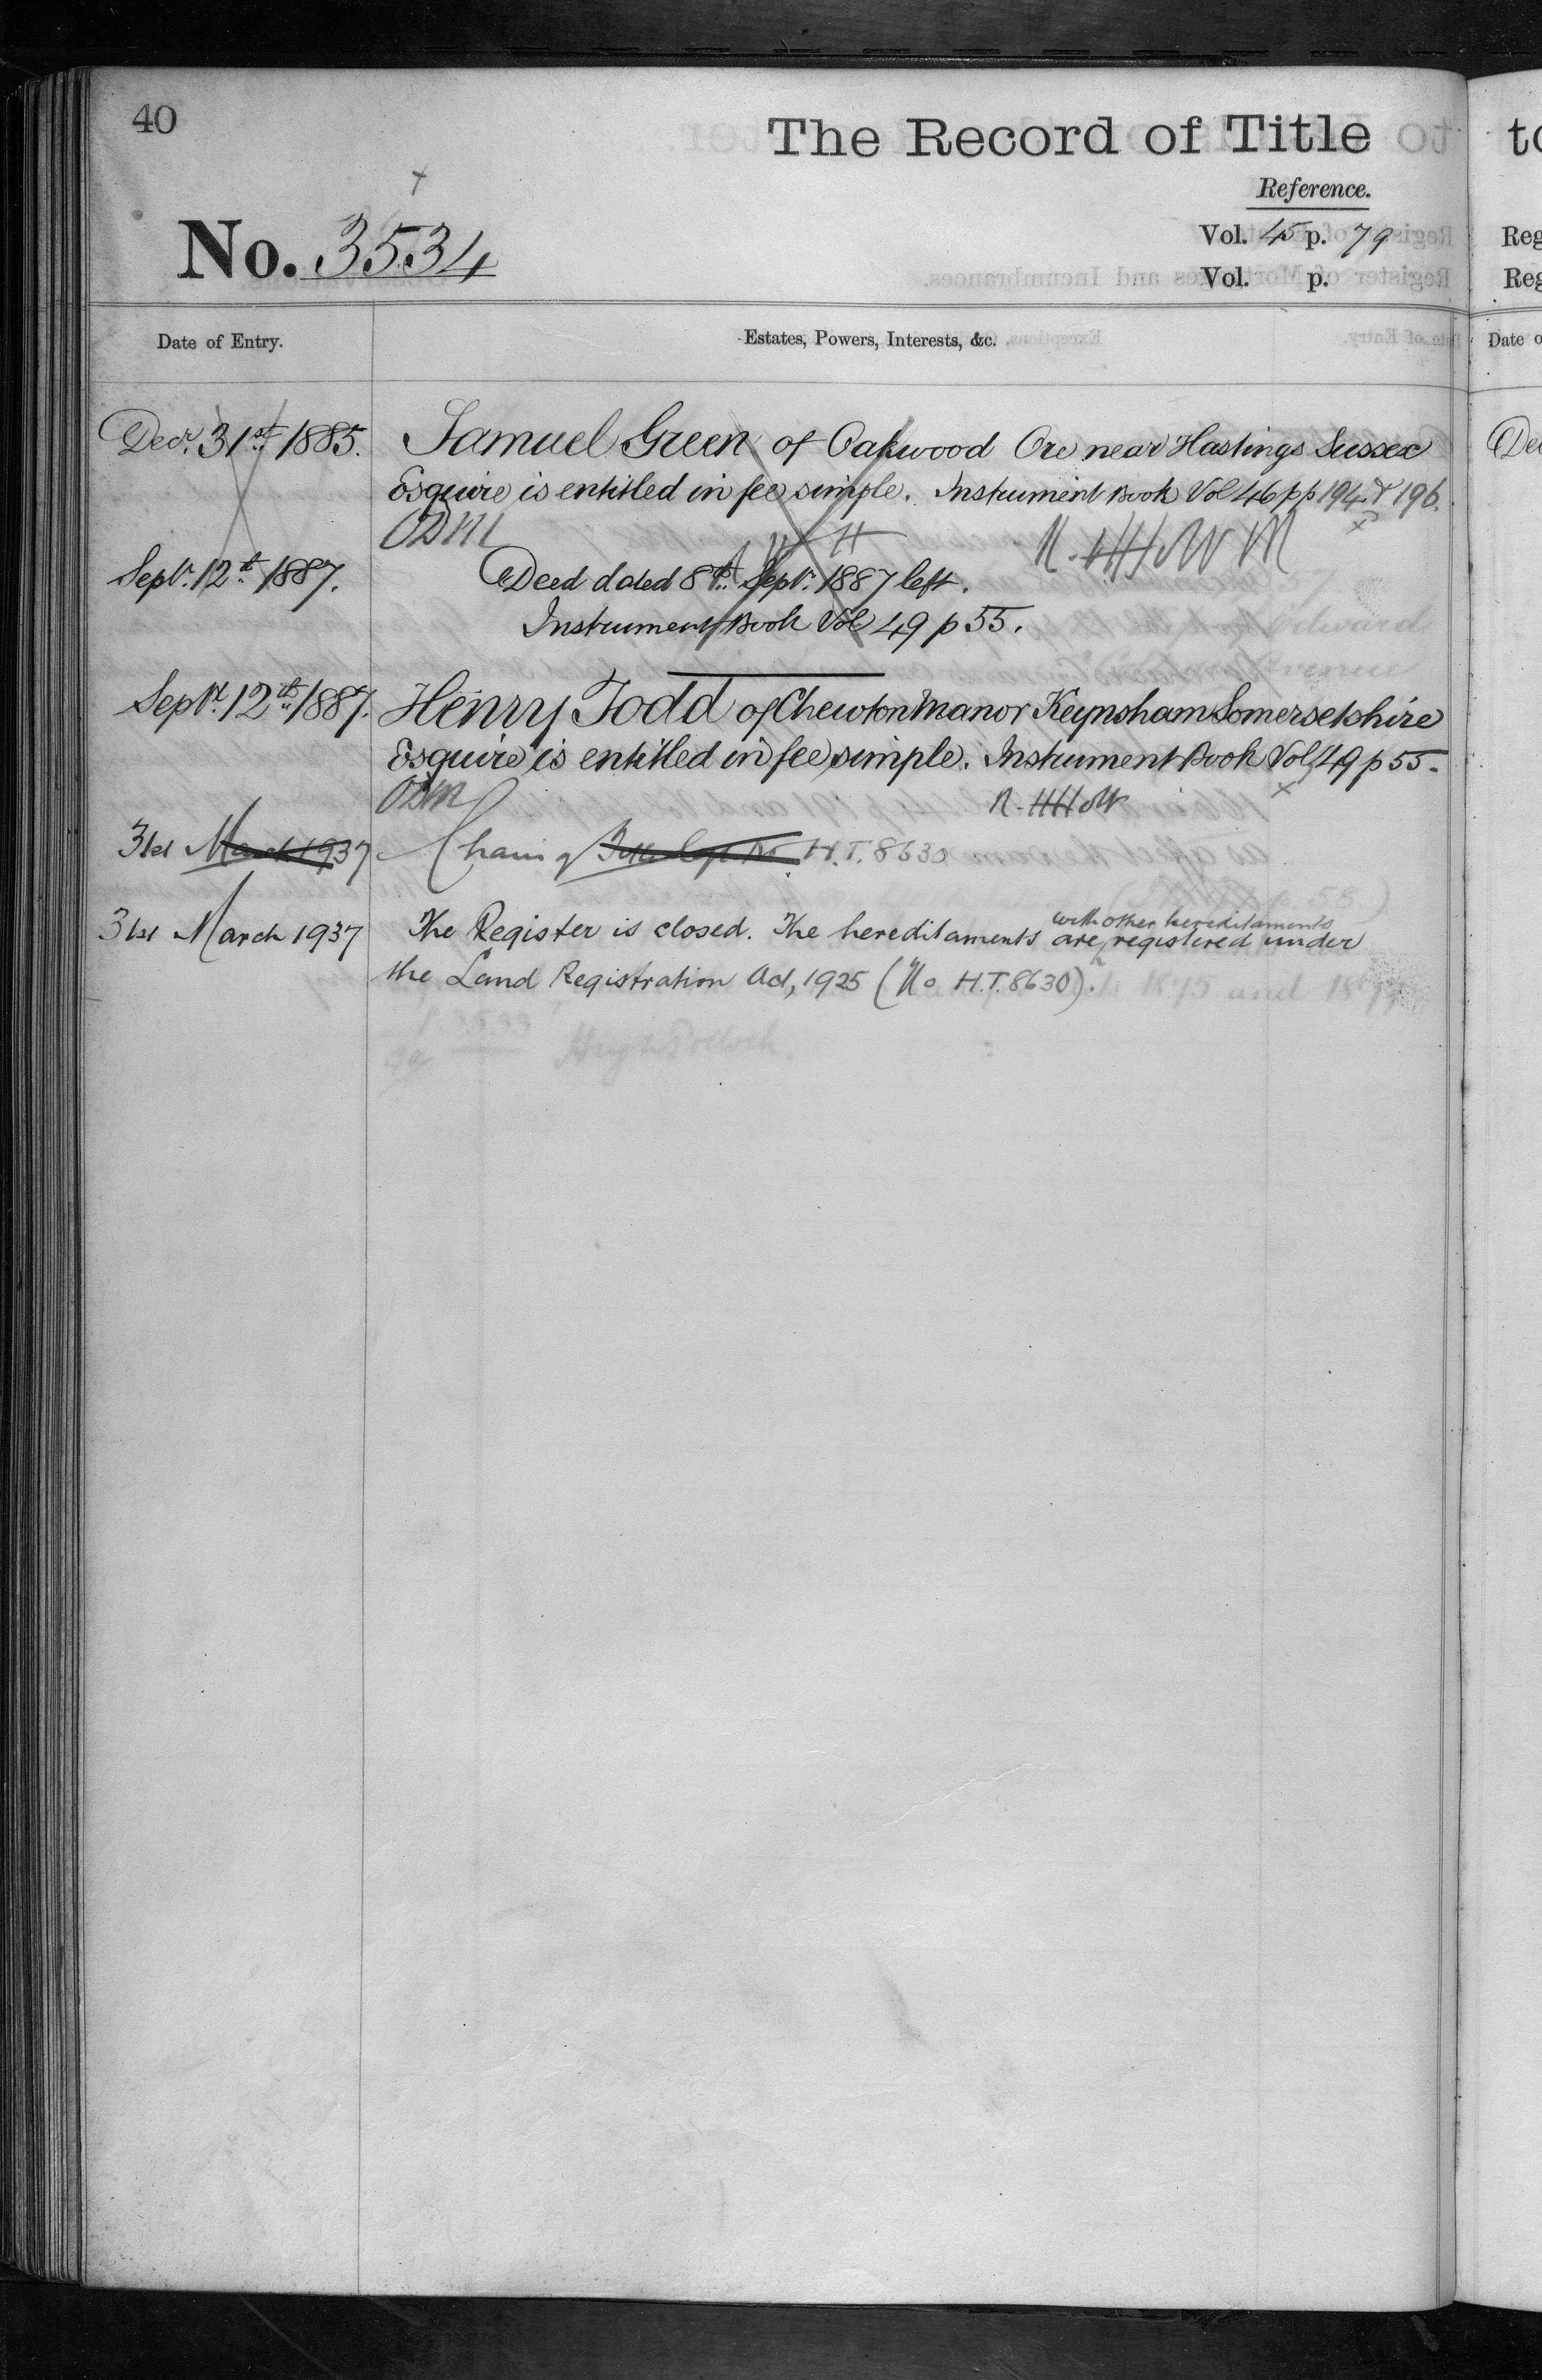 40
The Record of Title
Reference.
No. 3534
Vol. 45 p. 79
Vol. p.
Date of Entry.
Estates, Powers, Interests, &c.
Decr. 31st 1885.
Samuel Green of Oakwood Ore near Hastings Sussex
Esquire is entitled in fee simple. Instrument Book Vol 46 pp 194 & 196.
Septr. 12th 1887.
Deed dated 8th Septr. 1887 left.
Instrument Book Vol 49 p 55.
Septr. 12th 1887.
Henry Todd of Chewton Manor Keynsham Somersetshire
Esquire is entitled in fee simple. Instrument Book Vol 49 p 55.
31st March 1937
H.T. 8630
31st March 1937
The Register is closed. The hereditaments are with other hereditaments registered under
the Land Registration Act, 1925 (No H.T. 8630).
to
Reg
Reg
Date o
Dec